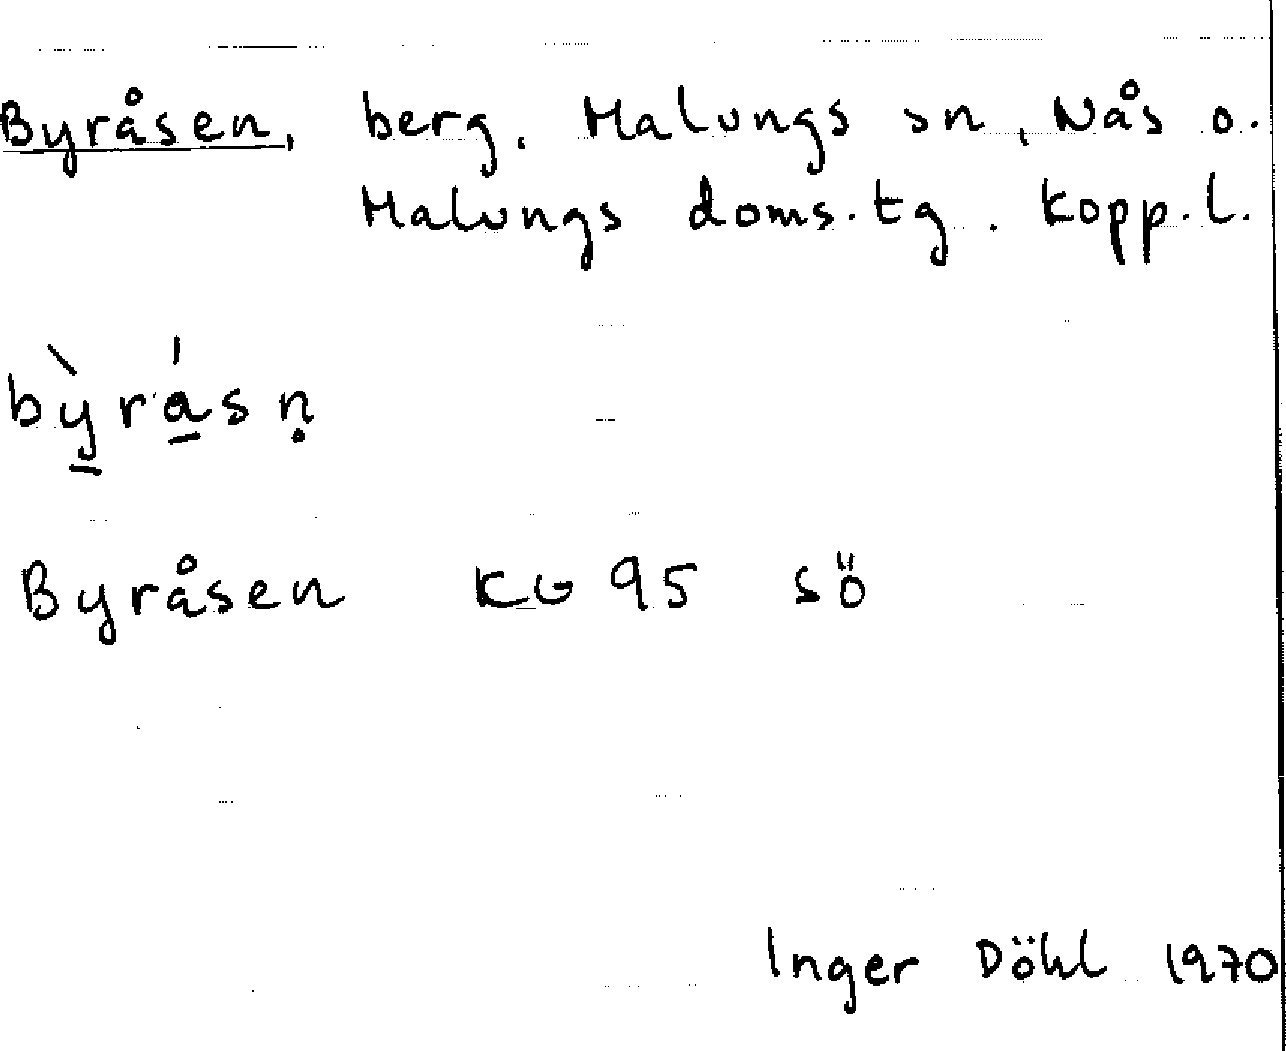 Byråsen, berg. Malungs sn, Nås o.
Malungs doms.tg. Kopp.l.
bỳ̲rá̲sṇ
Byråsen KG 95 sö
Inger Döhl 1970